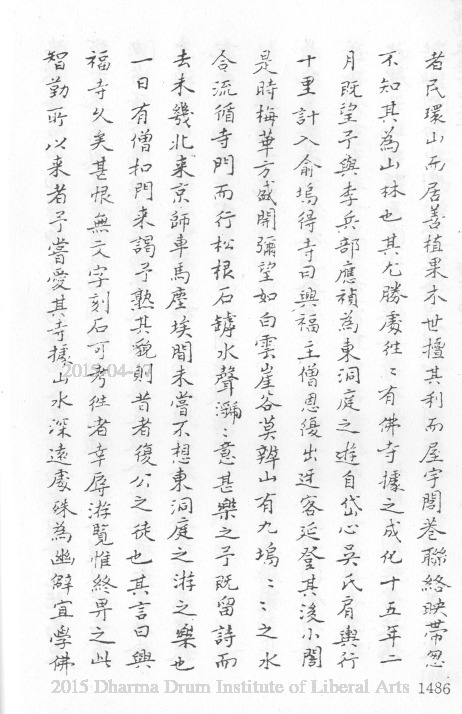 者民環山而居善植果木世擅其利而屋宇閭巷聯絡映帶忽
不知其為山林也其尤勝處徃〻有佛寺據之成化十五年二
月既望予與李兵部應禎為東洞庭之遊自岱心吳氏肩輿行
十里計入俞塢得寺曰興福主僧恩復出迓客延登其後小閣
是時梅華方盛開彌望如白雲崖谷莫辨山有九塢〻〻之水
合流循寺門而行松根石罅水聲㶁〻意甚樂之予既留詩而
去未幾北来京師車馬塵埃間未嘗不想東洞庭之游之樂也
一日有僧扣門来謁予熟其貌則昔者復公之徒也其言曰興
福寺久矣甚恨無文字刻石可考徃者幸辱游覽惟終畀之此
智勤所以来者予嘗愛其寺據山水深遠處殊為幽僻宜學佛
2015-04-17
2015 Dharma Drum Institute of Liberal Arts
1486